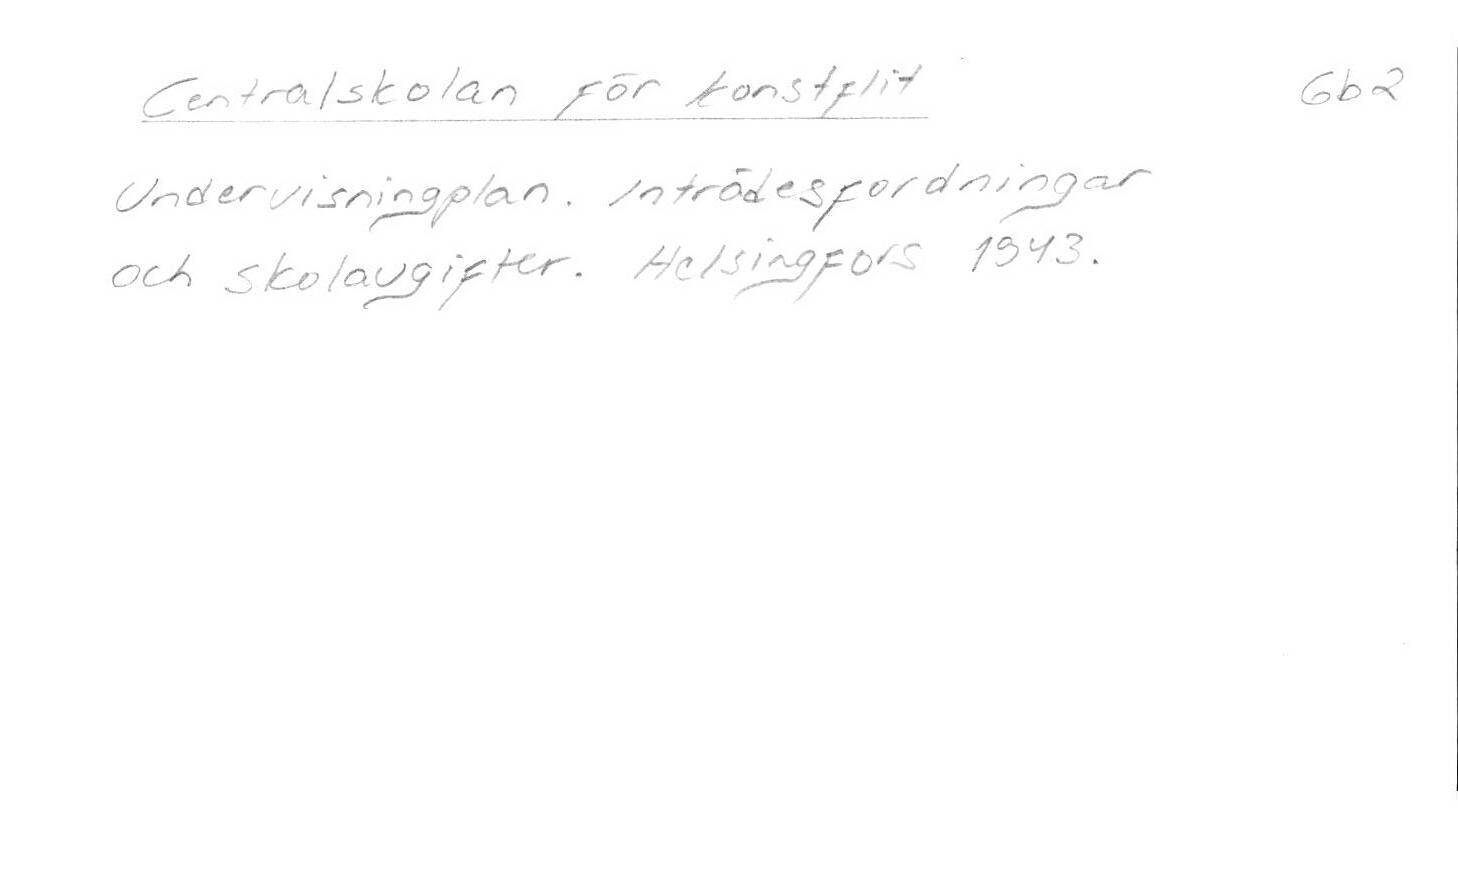 Centralskolan för konstflit 6b2
Undervisningplan. Inträdesfordningar
och skolavgifter. Helsingfors 1943.